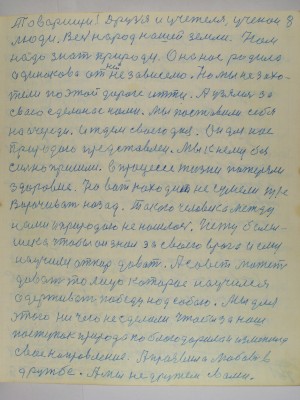 Товарищи! Друзья и учителя, ученои
люди, Весь народ нашей земли. Нам
надо знат природу. Она нас родила
одинакова от ней независемо. Но мы не захо-
тели по этой дороге итти. А взялис за
своего сделаное нами. Мы поставили себя
на очередь. и ждем своего дня. Он для нас
природою представлен. Мы к нему без
силно пришли. В процессе жизни потеряли
здоровие. Но ват находит не сумели
ворочиват назад. Такого человека между
нами и природою не нашлос. Нету
чтобы он знал за своего врага и ему
научилис отпор дават. А совет может
дават то лицо которае научился
одерживат победу над собою. Мы для
этого ни чего не сделали чтобы за наш
поступок природа поблогодарила и изменила
свое напровление. А проявила любовь в
дружбе. А мы не дружем с вами.